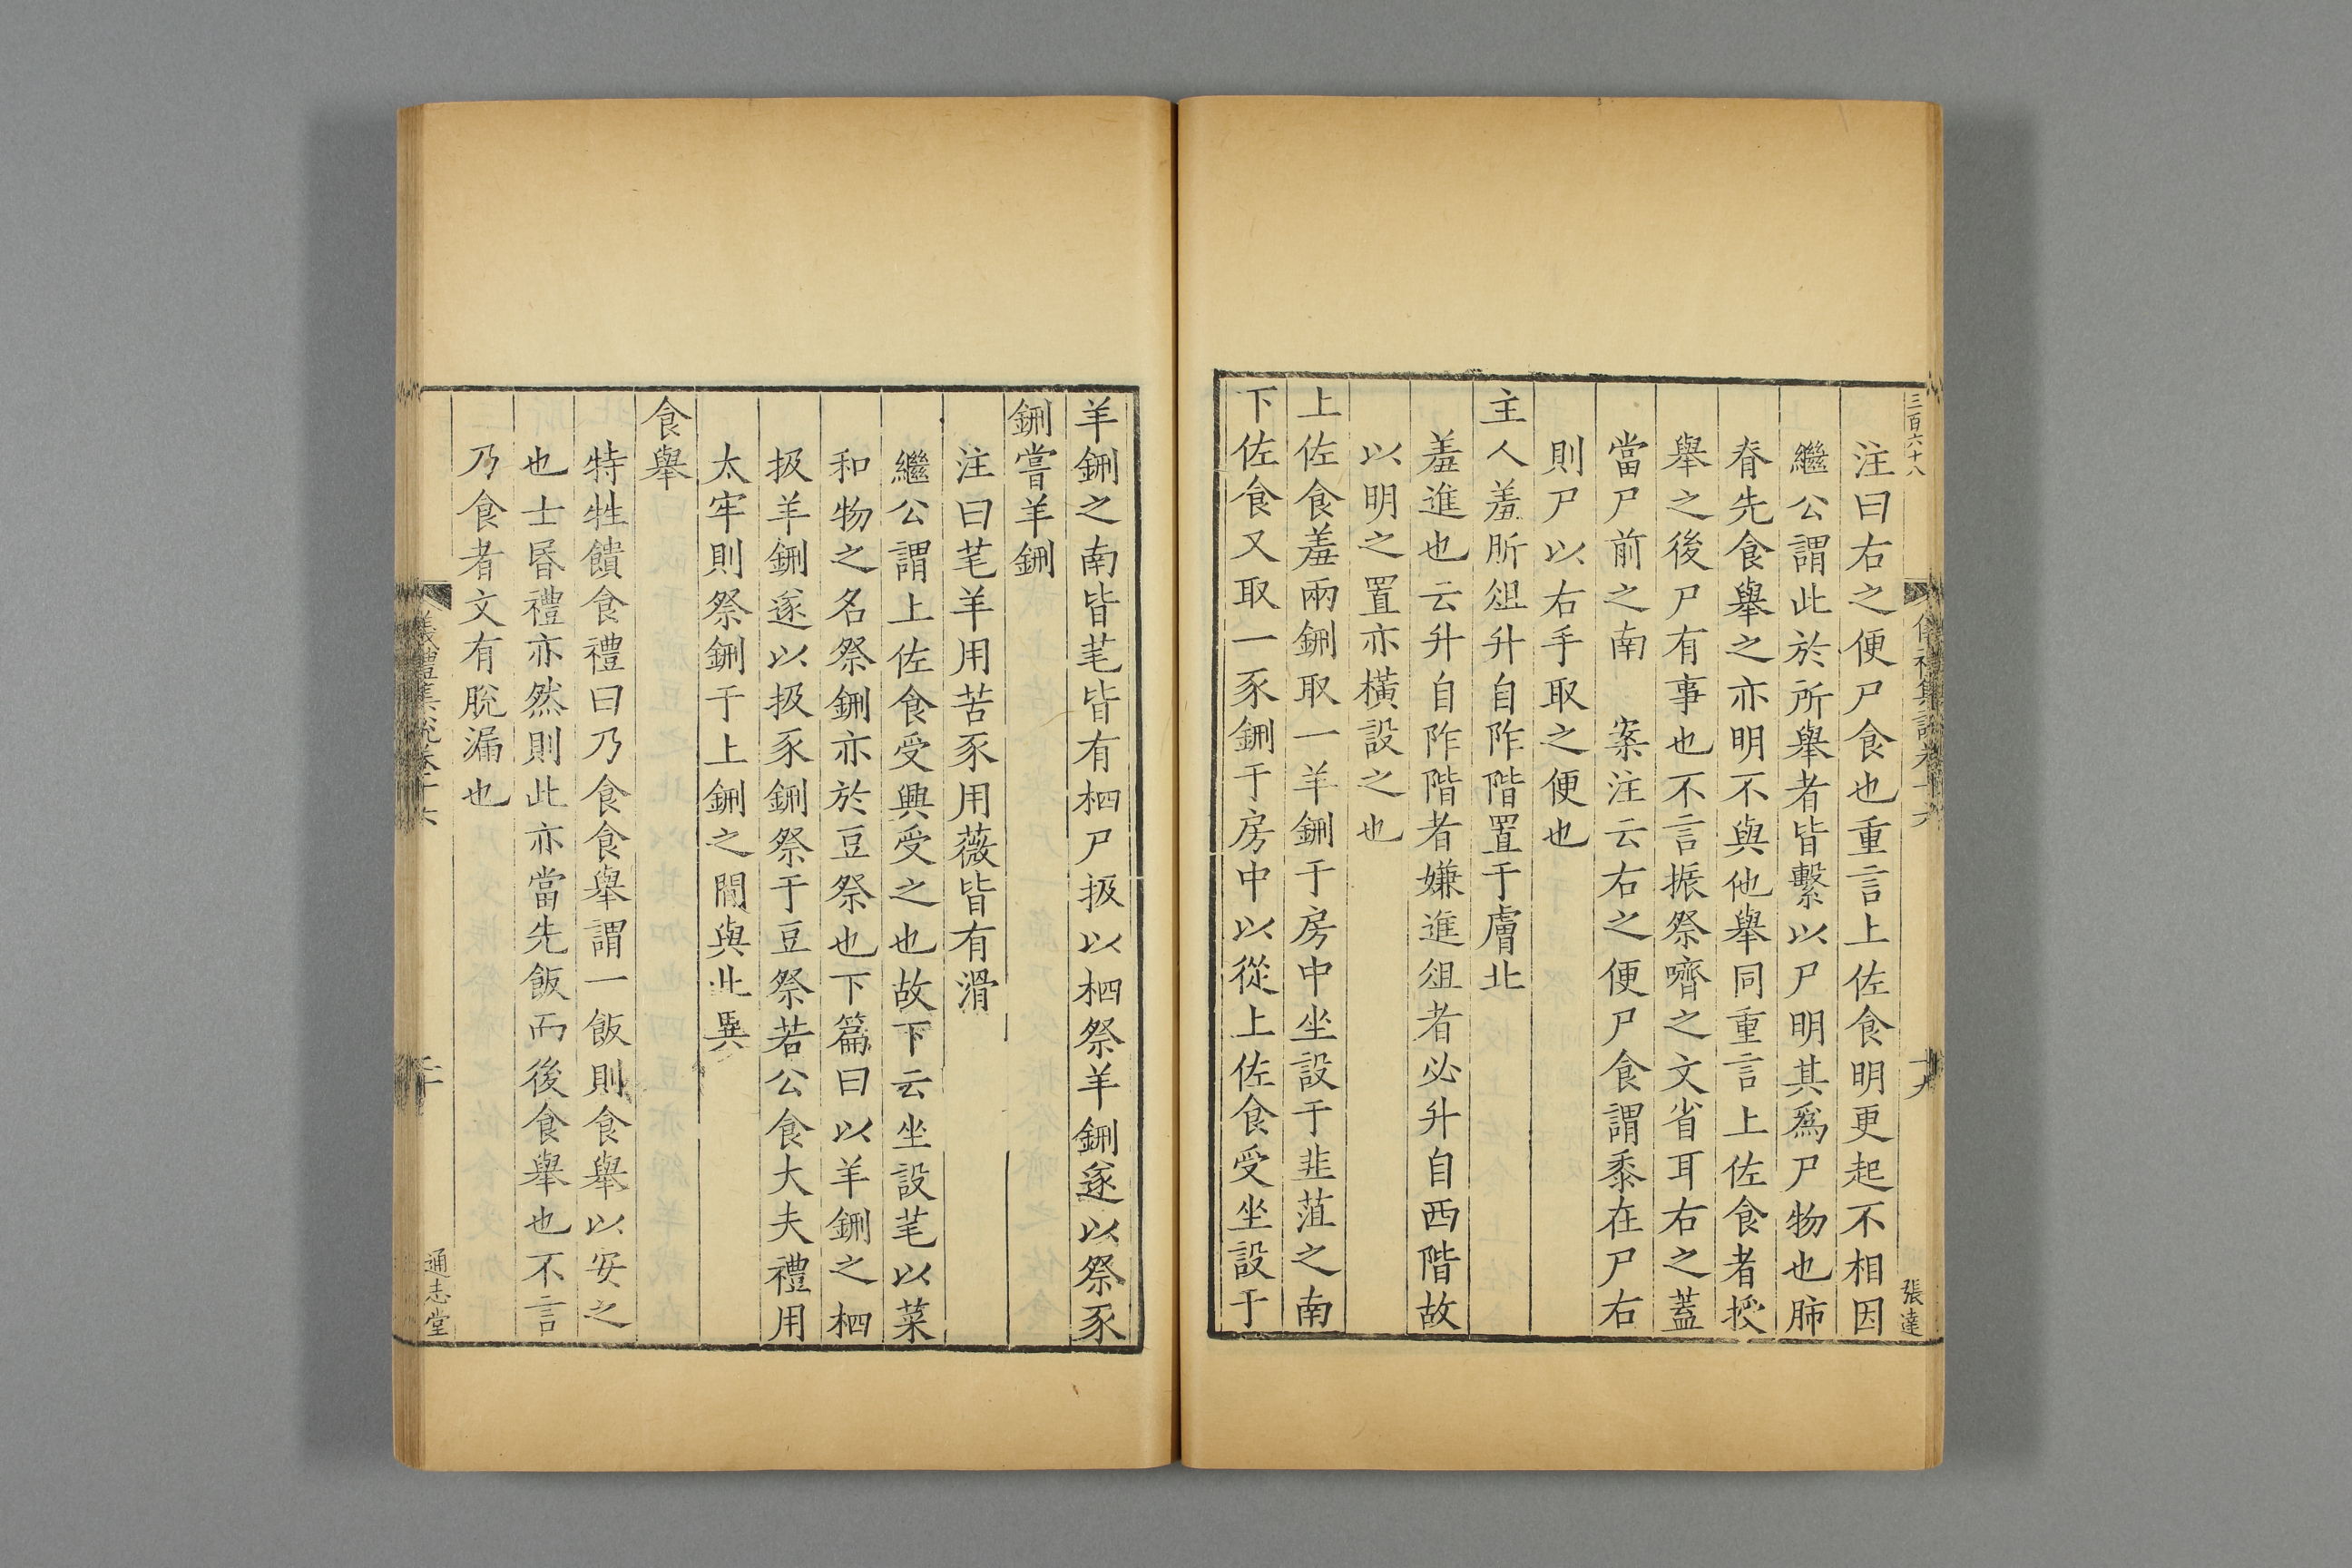 三百六十八
儀禮集說卷十六
十九
張達
注曰右之便尸食也重言上佐食明更起不相因
繼公謂此於所舉者皆繫以尸明其爲尸物也肺
脊先食舉之亦明不與他舉同重言上佐食者授
舉之後尸有事也不言振祭嚌之文省耳右之蓋
當尸前之南　案注云右之便尸食謂黍在尸右
則尸以右手取之便也
主人羞肵俎升自阼階置于膚北
羞進也云升自阼階者嫌進俎者必升自西階故
以明之置亦橫設之也
上佐食羞兩鉶取一羊鉶于房中坐設于韭菹之南
下佐食又取一豕鉶于房中以從上佐食受坐設于
羊鉶之南皆芼皆有柶尸扱以柶祭羊鉶遂以祭豕
鉶嘗羊鉶
注曰芼羊用苦豕用薇皆有滑
繼公謂上佐食受興受之也故下云坐設芼以菜
和物之名祭鉶亦於豆祭也下篇曰以羊鉶之柶
扱羊鉶遂以扱豕鉶祭于豆祭若公食大夫禮用
太牢則祭鉶于上鉶之閒與此異
食舉
特牲饋食禮曰乃食食舉謂一飯則食舉以安之
也士昏禮亦然則此亦當先飯而後食舉也不言
乃食者文有脫漏也
儀禮集說卷十六
二十
通志堂